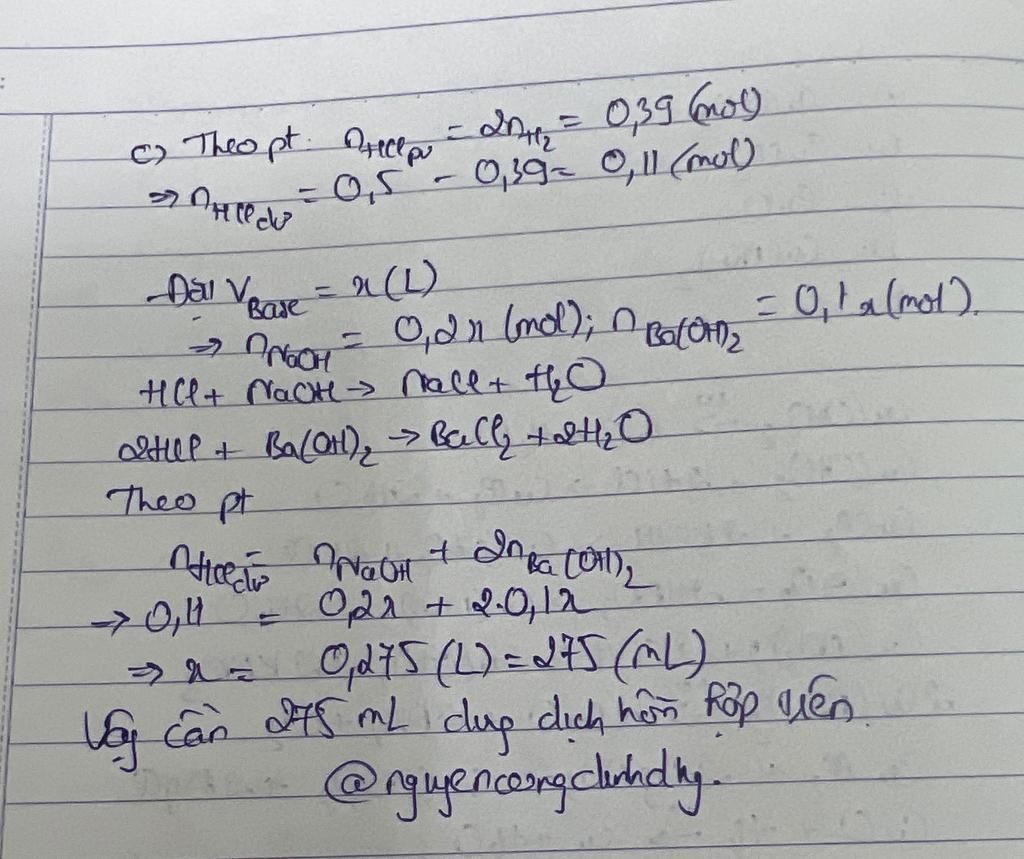 c) Theo pt: nHCl pư = 2nH2 = 0,39 (mol)
⇒ nHCl dư = 0,5 - 0,39 = 0,11 (mol)
- Đặt VBase = x (L)
⇒ nNaOH = 0,2x (mol); nBa(OH)2 = 0,1x (mol).
HCl + NaOH → NaCl + H2O
2HCl + Ba(OH)2 → BaCl2 + 2H2O
Theo pt
nHCl dư = nNaOH + 2nBa(OH)2
⇒ 0,11 = 0,2x + 2.0,1x
⇒ x = 0,275 (L) = 275 (mL)
Vậy cần 275 mL dung dịch hỗn hợp trên.